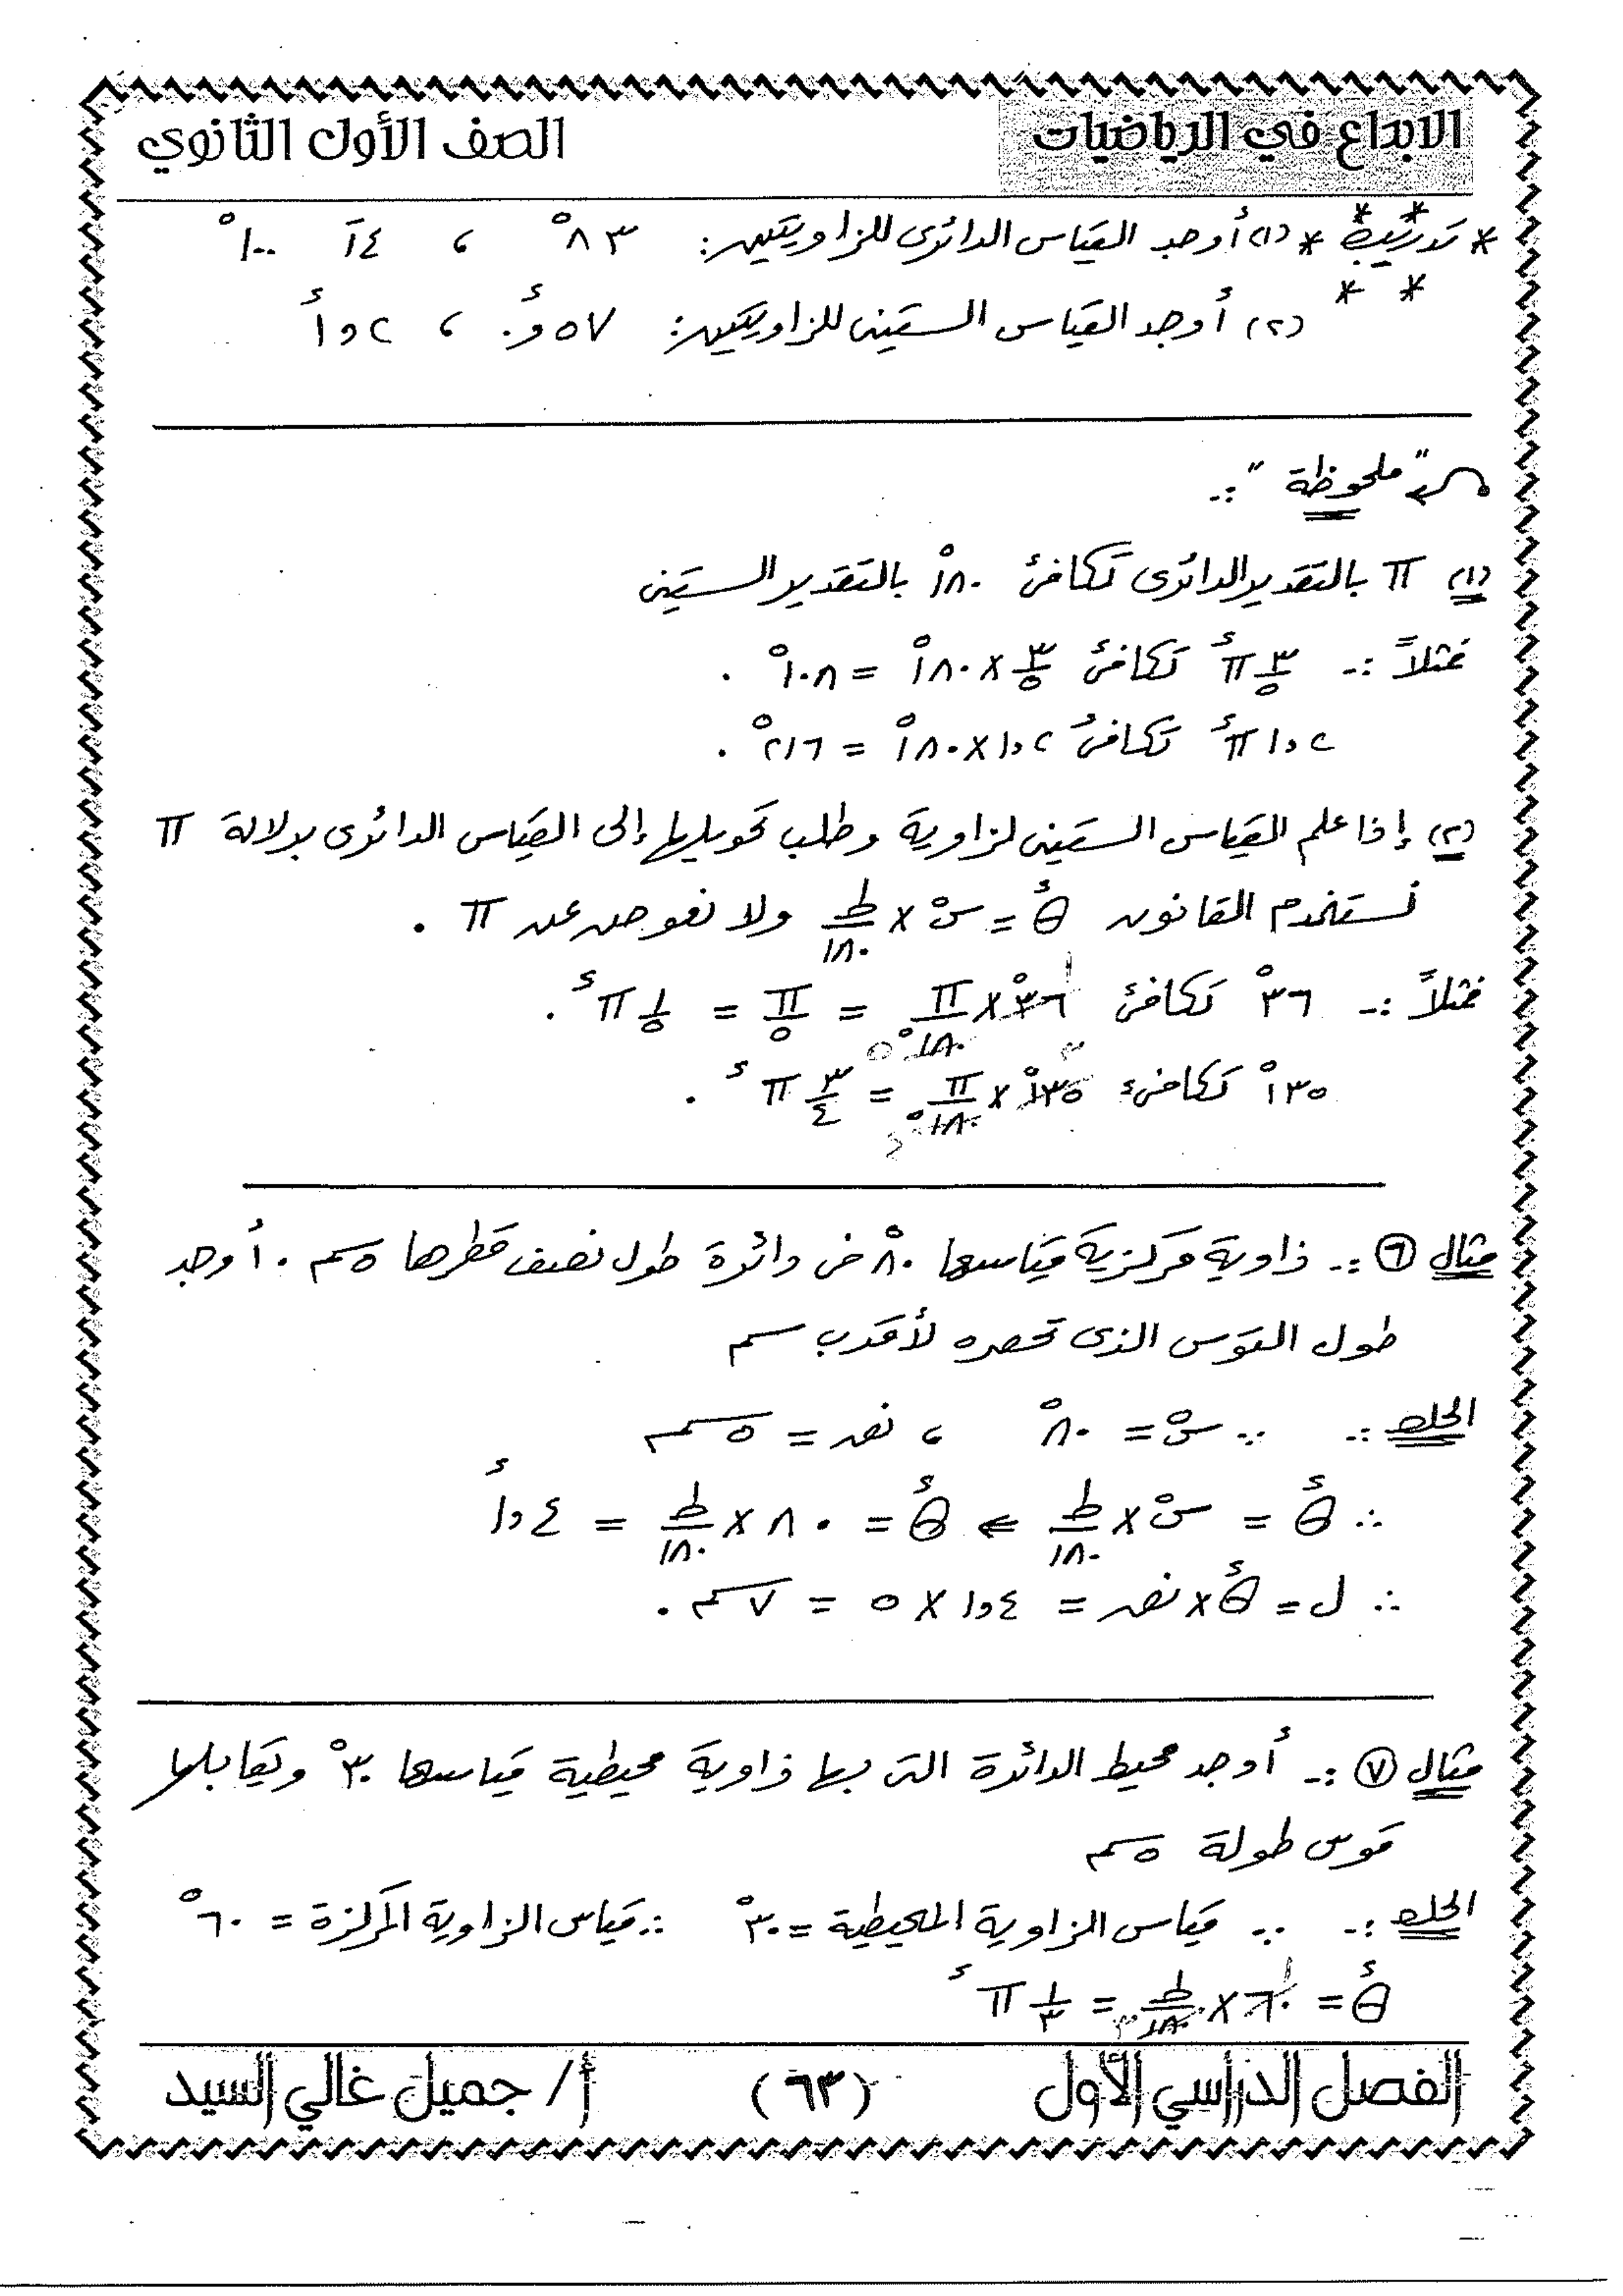 الابداع في الرياضيات
الصف الأول الثانوي
* تدريب * (١) أوجد القياس الدائرى للزاويتين: ٨٣° ، ١٤َ ١٠٠°
(٢) أوجد القياس الستينى للزاويتين: ٠,٥٧ء ، ١,٢ء
"ملحوظة" :-
(١) π بالتقدير الدائرى تكافئ ١٨٠° بالتقدير الستينى
فمثلاً :- ٣/٥ πء تكافئ ٣/٥ × ١٨٠° = ١٠٨° .
١,٢ πء تكافئ ١,٢ × ١٨٠° = ٢١٦° .
(٢) إذا علم القياس الستينى لزاوية وطلب تحويلها إلى القياس الدائرى بدلالة π
نستخدم القانون θء = س° × ط/١٨٠ ولا نعوض عن π .
فمثلاً :- ٣٦° تكافئ ٣٦° × π/١٨٠° = π/٥ = ١/٥ πء .
١٣٥° تكافئ ١٣٥° × π/١٨٠° = ٣/٤ πء .
مثال ٦ :- زاوية مركزية قياسها ٨٠° فى دائرة طول نصف قطرها ٥سم . أوجد
طول القوس الذى تحصره لأقرب سم
الحل :- ∵ س° = ٨٠° ، نق = ٥سم
∴ θء = س° × ط/١٨٠ ⇐ θء = ٨٠ × ط/١٨٠ = ١,٤ء
∴ ل = θء × نق = ١,٤ × ٥ = ٧سم .
مثال ٧ :- أوجد محيط الدائرة التى بها زاوية محيطية قياسها ٣٠° ويقابلها
قوس طولة ٥سم
الحل :- ∵ قياس الزاوية المحيطية = ٣٠° ∴ قياس الزاوية المركزة = ٦٠°
θء = ٦٠ × ط/١٨٠ = ١/٣ πء
الفصل الدراسي الأول
(٦٣)
أ/ جميل غالي السيد